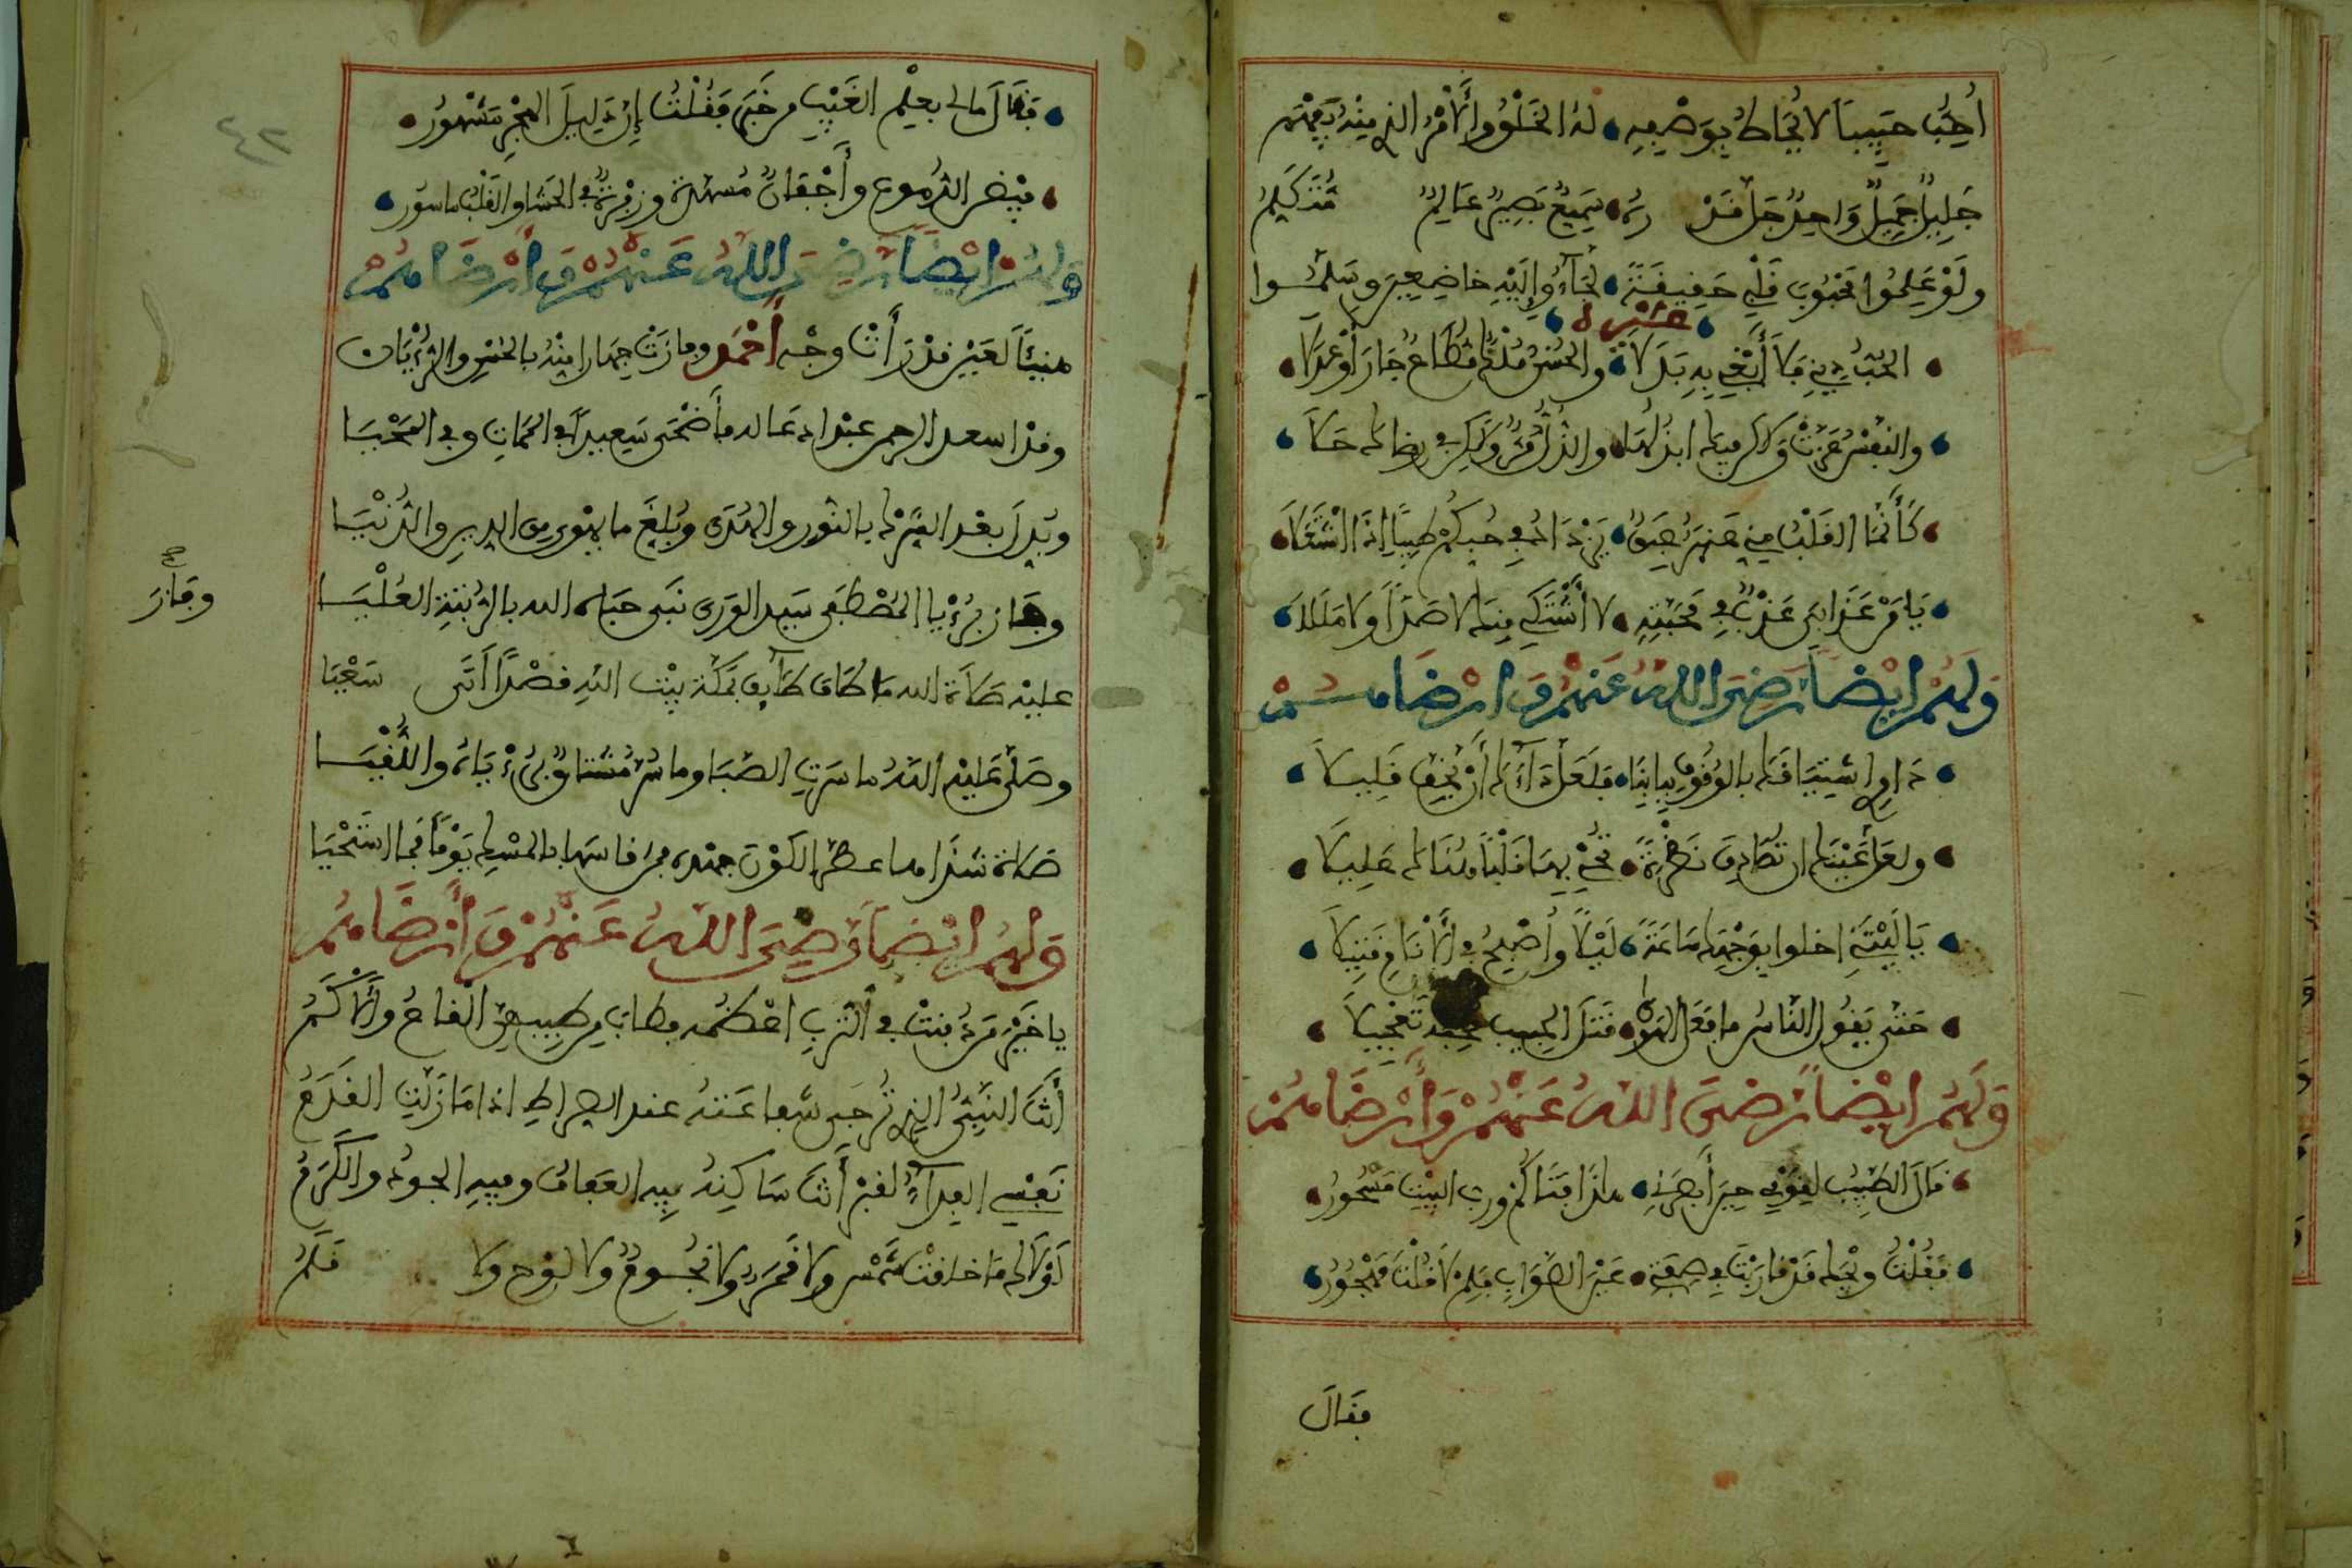 أُحِبُّ حَبِيبًا لا يُحَاطُ بِوَصْفِهِ لهُ الخَلْقُ والأمْرُ الذي مِنْهُ يُفْهَمُ
جَلِيلٌ جَمِيلٌ وَاحِدٌ جَلَّ قَدْرُهُ سَمِيعٌ بَصِيرٌ عَالِمٌ مُتَكَلِّمُ
ولَوْ عَلِمُوا مَحْبُوبَ قَلْبِي حَقِيقَةً لَجَاءُوا إِلَيْهِ خاضِعِينَ وسَلَّمُوا
غيره
الحُبُّ دِينِي فَلاَ أَبْغِي بِهِ بَدَلاَ والحُسْنُ مُلْكٌ مُطَاعٌ جَارَ أوْ عَدَلاَ
والنَفْسُ عَزَّتْ وَلاكن فيك ابذلُها والذُّلُّ مُرٌّ ولَكِنْ في رضاك حَلاَ
كَأَنَّمَا القَلْبُ مني عَنْبَرٌ عَبِقٌ يَزْدَادُ في حُبِكُمْ طِيبًا إذَا اشْتَعَلاَ
يَا مَنْ عَذَابِي عَذْبٌ في مَحَبَّتِهِ لا أَشْتَكِي مِنكَ لا صَدًّا ولا مَلَلاَ
وَلَهُمْ ايْضًا رَضِيَ اللهُ عَنْهُمْ وَارْضَاهُمْ
دَاوِ اشْتِيَاقَكَ بالوُقُوفِ بِبَابِنَا فَلَعَلَّ دَاءَكَ أَنْ يَخِفَّ قَلِيلاَ
ولعَلَّ عَيْنَكَ ان تُصَادِفَ نَظْرَةً تُحْيِي بِهَا قَلْبًا هُنَاكَ عَلِيلاَ
يَا لَيْتَنِي اخلوا بِوَجْهِكَ سَاعَةً لَيْلاً وأُصْبِحُ في الأَنَامِ قَتِيلاَ
حَتَّى يَقُولَ النَّاسُ مافعل الهَوَى قَتَلَ الحبيب مُحِبَّهُ تَعْجِيلاَ
وَلَهُمْ ايْضًا رَضِيَ اللهُ عَنْهُمْ وَأَرْضَاهُمْ
قَالَ الطَبِيبُ لِقَوْمِي حِينَ أَبْصَرَنِي هَذَا فَتَاكُمْ ورب البَيْتِ مَسْحُورُ
فَقُلْتُ ويْحَكَ قَدْ قارَبْتَ في صِفَتِي عَيْنَ الصَوَابِ فَلِمْ لا قُلْتَ مَهْجُورُ
فقال
فَقَالَ مالي بعِلْمِ الغَيْبِ من خَبَرٍ فَقُلْتُ إنَّ دَلِيلَ الهَجْرِ مَشْهُورُ
فَيْضُ الدُمُوعِ وأَجْفانٌ مُسَهَّدةٌ وزفْرةٌ في الحَشا والقَلْبُ ماسُورُ
وَلَهُمْ ايْضًا رَضِيَ اللهُ عَنْهُمْ وَأَرْضَاهُمْ
هنيئًا لعَيْنٍ قدْ رَأَتْ وجْه أَحْمَدٍ وفازَتْ جهارا منْهُ بالحُسْنِ والرُؤْيَا
وقدْ اسعد الرحمن عبْدا دعَا له فأَضْحَى سَعِيدًا في المَماتِ وفي المَحْيَا
وبُدِلَ بعْد الشِرْكِ بالنُّورِ والهُدَى وبُلِغَ ما يهْوى من الدين والدُنْيَا
وفاز برُؤْيا المُصْطَفَى سَيِدِ الوَرَى نَبِي حبَاه الله بالرُتْبَةِ العُلْيَا
وفاز صح
عليْهِ صَلاَةُ الله مَا طَافَ طَائِفٌ بمَكَّةَ بيْتَ اللهِ قصْدًا أَتَى سَعْيَا
وصَلَّى عَلَيْهِ اللهُ ما سَرَتِ الصَّبَا وما سُرَّ مُشْتاقٌ بِرُؤْيَاهُ واللُّقْيَا
صَلاةً شَذَاهَا عطّر الكَوْنَ جمْلة فمن قاسَها بالمسْكِ يَوْمًا فمَا اسْتَحْيَا
وَلهُمْ ايْضًا رَضِيَ اللهُ عَنْهُمْ وَأَرْضَاهُمْ
يا خَيْرَ مَنْ دُفِنَتْ في التُرْبِ اعْظُمه فطابَ من طِيبِهِنَّ القاعُ والأَكَمُ
أَنْتَ النَبِيُّ الذِي تُرْجَى شَفاعَتُهُ عند الصِراطِ اذا مَا زَلَّتِ القَدَمُ
نَفْسِي الفِدَاءُ لقبْرٍ أَنْتَ سَاكِنُهُ فِيهِ العَفافُ وفيهِ الجودُ والكَرَمُ
لَوْلاكَ مَا خلقتْ شَمْسٌ ولا قَمَرٌ ولا نُجُومٌ ولا لوْح ولا قَلَمُ
٤٢